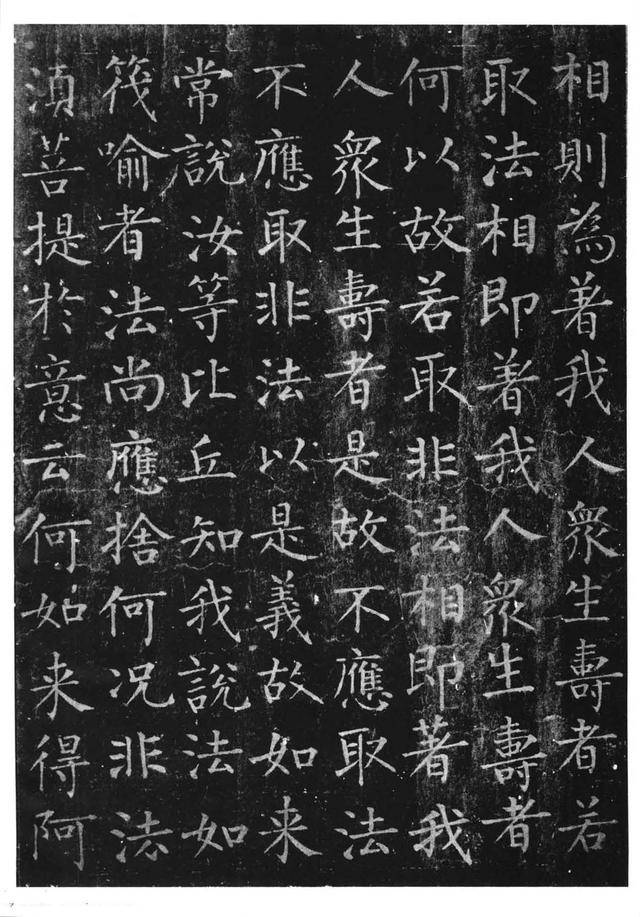 相則為著我人衆生壽者若
取法相即著我人衆生壽者
何以故若取非法相即著我
人衆生壽者是故不應取法
不應取非法以是義故如来
常說汝等比丘知我說法如
筏喻者法尚應捨何况非法
湏菩提於意云何如来得阿